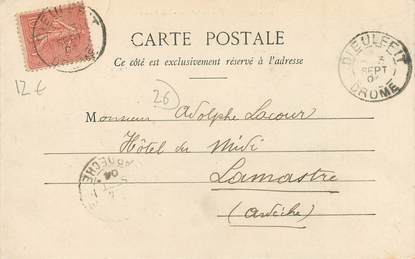 CARTE POSTALE
Ce côté est exclusivement réservé à l'adresse
DIEULEFIT
3
SEPT
04
DROME
12 €
26
Monsieur Adolphe Lacour
Hôtel du Midi
Lamastre
(Ardèche)
ARDECHE
04